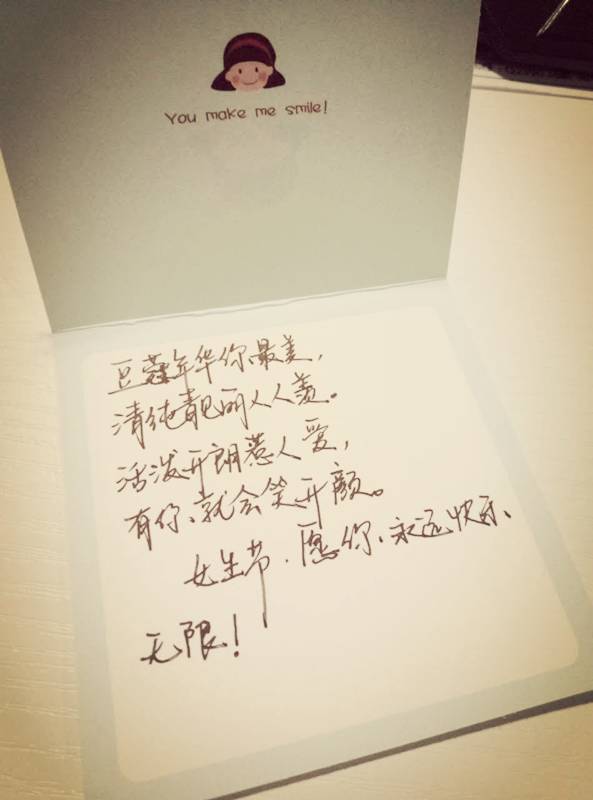 You make me smile!
豆蔻年华你最美,
清纯靓丽人人羡。
活泼开朗惹人爱,
有你、就会笑开颜。
女生节、愿你、永远快乐、
无限!